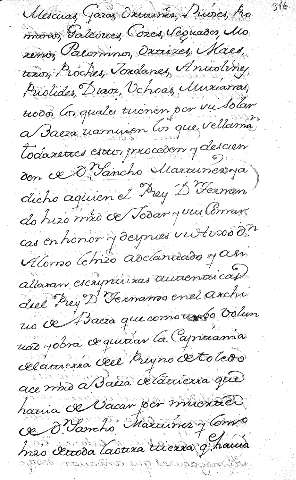 396
Mescuas, Gozas, Quixanes, Riveres, Ro
meros, Galeotes, Cozes, Segurados, Mo
renos, Palominos, Ortizes, Maes
tros, Roches, Jordanes, Antolines,
Robledes, Diaz, Uchoas, Moxarras,
todos los quales tienen por su Solar
a Baeza vamuien los que se llaman
todos estos proceden y descien
den de Dn Sancho Martinez ya
dicho aquien el Rey Dn Fernan
do hizo mrd de Jodar y sus comar
cas en honor y despues su hixo Dn
Alonso le hizo adelantado y assi
allaran escripturas autenticas
del Rey Dn Fernando en el archi
uo de Baeza que como tengo volun
tad y obra de quitar la Capitania
de la tierra del Reyno de toledo
ace mrd a Baeza de la tierra que
hauia de Vacar por muerte
de Dn Sancho Martinez y como
hizo de toda la otra tierra q hauia